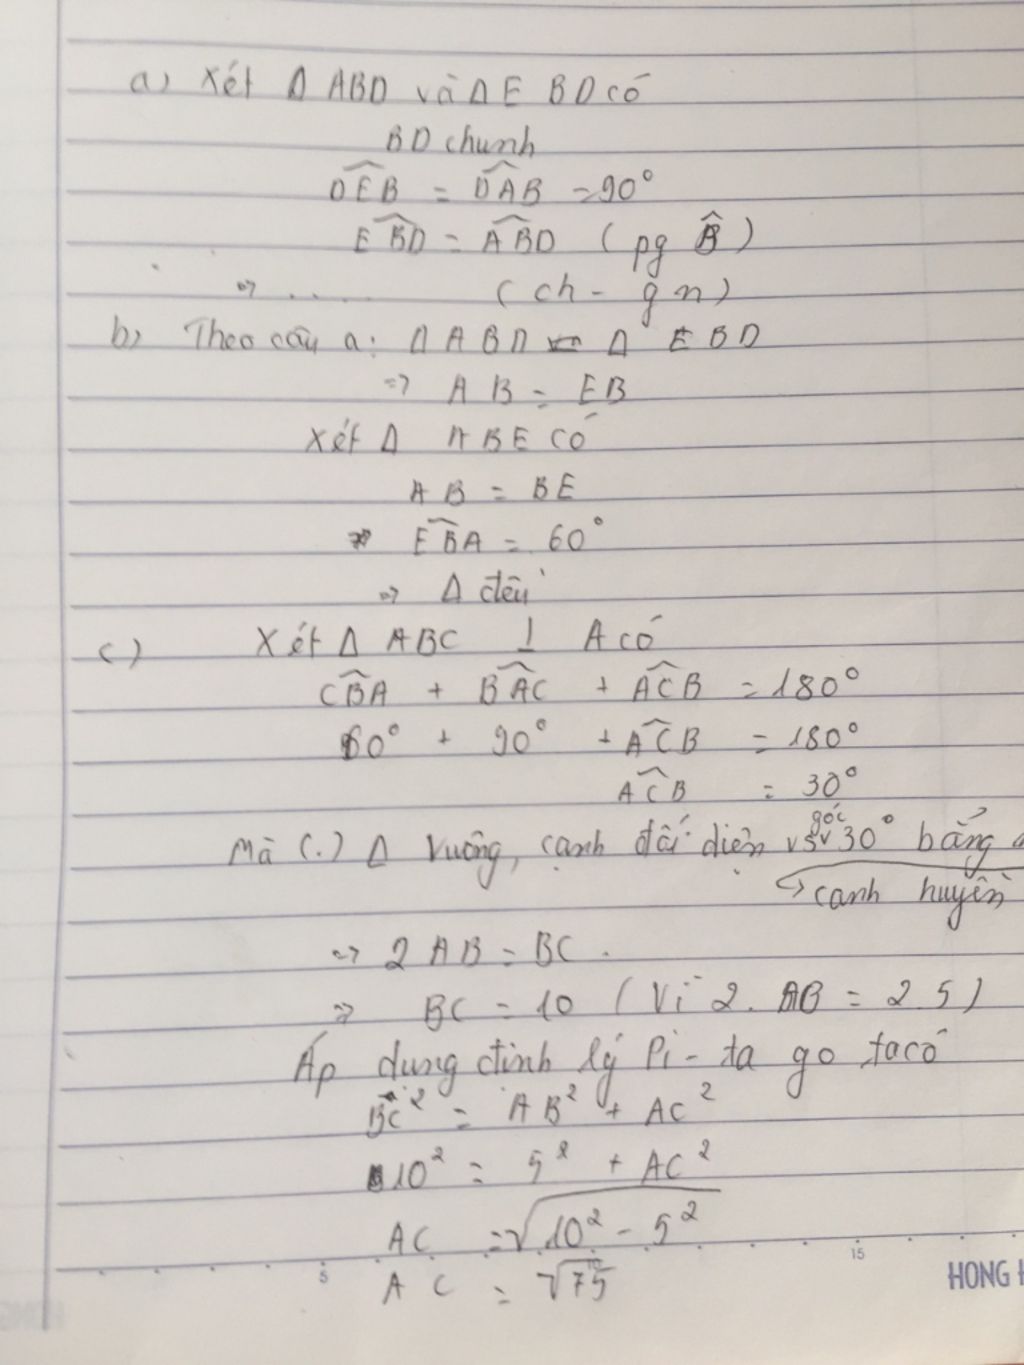 a) Xét Δ ABD và Δ E BD có
BD chunh
DEB = DAB = 90°
EBD = ABD ( pg B̂ )
=> ..... ( ch - gn )
b) Theo câu a: Δ ABD = Δ EBD
=> AB = EB
Xét Δ ABE có
AB = BE
EBA = 60°
=> Δ đều
c) Xét Δ ABC ⊥ A có
CBA + BAC + ACB = 180°
60° + 90° + ACB = 180°
ACB = 30°
Mà (.) Δ vuông, cạnh đối diện với góc 30° bằng
↪ cạnh huyền
=> 2 AB = BC .
=> BC = 10 ( Vì 2. AB = 2.5 )
Áp dụng định lý Pi - ta go ta có
BC² = AB² + AC²
10² = 5² + AC²
AC = √10² - 5²
AC = √75
5 10 15
HONG H